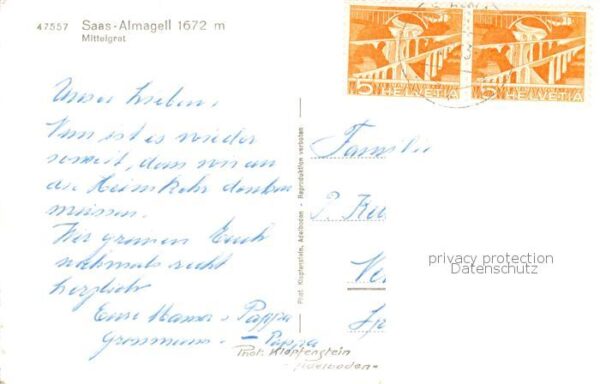 47557 Saas-Almagell 1672 m
Mittelgrat
5 HELVETIA 5 HELVETIA
Unsre Lieben,
Nun ist es wieder
soweit, dass wir an
die Heimkehr denken
müssen.
Wir grüssen Euch
nochmals recht
herzlich
Eure Mama + Pappa
Grossmama - Pappa
Phot. Klopfenstein, Adelboden - Reproduktion verboten
Familie
P.
privacy protection
Datenschutz
Phot. Klopfenstein
-Adelboden-